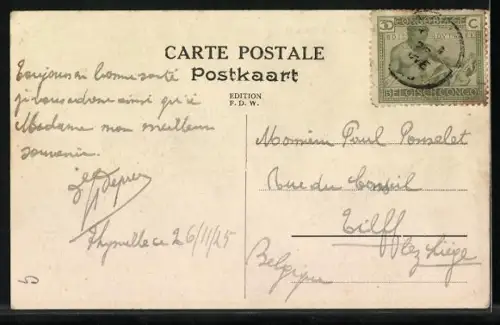 CARTE POSTALE
Postkaart
EDITION
F. D. W.
5 C
BELGISCH CONGO
Toujours en bonne santé
je vous adresse ainsi qu'à
Madame mon meilleur
souvenir.
le 26/11/25
Monsieur Paul Ponselet
Rue du Conseil
Tilff
lez Liège
Belgique